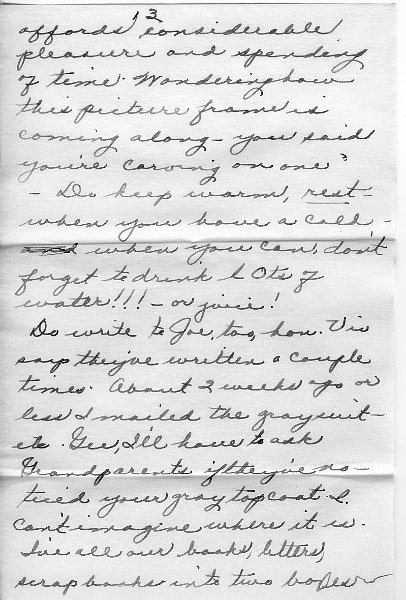 13
affords considerable
pleasure and spending
of time. Wondering how
this picture frame is
coming along - you said
you're carving on one?
- Do keep warm, rest
when you have a cold -
and when you can, don't
forget to drink lots of
water!!! - or juice!
Do write to Joe, too, hon. Viv
says they've written a couple
times. About 2 weeks ago or
less I mailed the gray suit -
etc. Gee, I'll have to ask
Grandparents if they've no-
ticed your gray topcoat. I
can't imagine where it is.
I've all our books, letters,
scrapbooks into two boxes